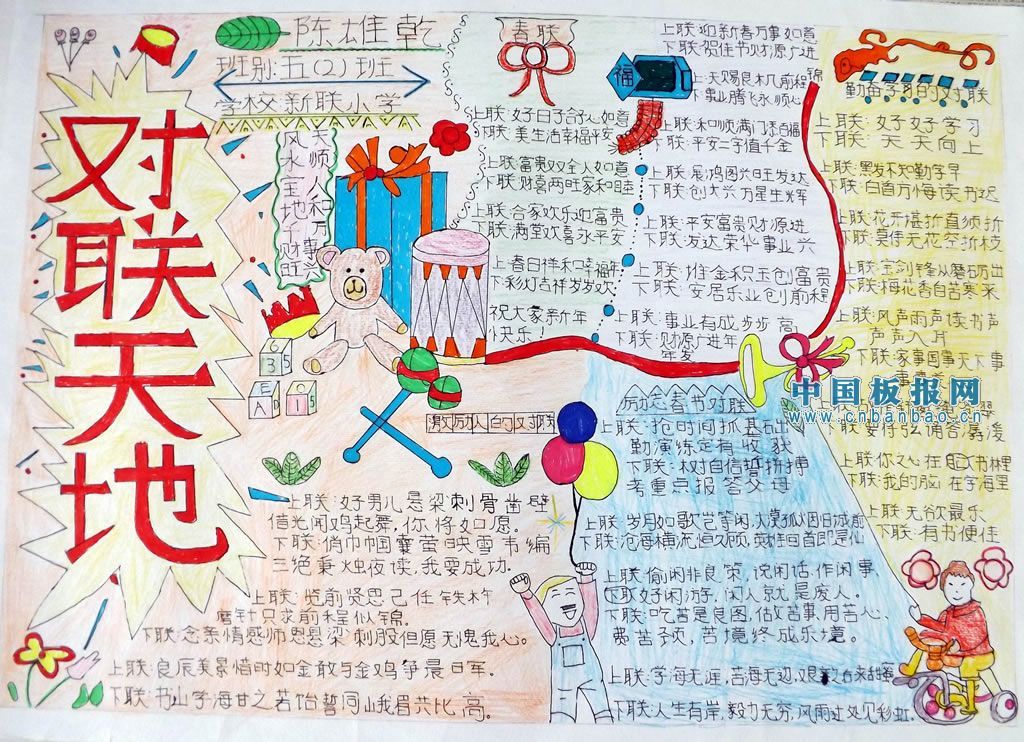 对联天地
陈雄乾
班别:五(2)班
学校新联小学
天师人和万事兴
风水宝地千财旺
春联
上联:好日子合人如意
下联:美生活幸福平安
上联:富贵双全人如意
下联:财喜两旺家和睦
上联:合家欢乐迎富贵
下联:满堂欢喜永平安
上:春日祥和幸福年
下:彩灯吉祥岁岁欢
祝大家新年
快乐!
福
上联:迎新春万事如意
下联:贺佳节财源广进
上:天赐良机前程锦
下:事业腾飞永顺心
上联:和顺满门添百福
下联:平安二字值千金
上联:展鸿图兴旺发达
下联:创大兴万星生辉
上联:平安富贵财源进
下联:发达荣华事业兴
上联:堆金积玉创富贵
下联:安居乐业创前程
上联:事业有成步步高
下联:财源广进年
年发
勤奋学习的对联
上联:好好学习
下联:天天向上
上联:黑发不知勤学早
下联:白首方悔读书迟
上联:花开堪折直须折
下联:莫待无花空折枝
上联:宝剑锋从磨砺出
下联:梅花香自苦寒来
上联:风声雨声读书声
声声入耳
下联:家事国事天下事
上联你之心在 书林里
下联:我的脑在学海里
上联:无欲最乐
下联:有书便佳
激励人的对联
上联:好男儿悬梁刺骨凿壁
借光闻鸡起舞,你将如愿。
下联:俏巾帼囊萤映雪韦编
三绝秉烛夜读,我要成功.
上联:览前贤思己任铁杵
磨针只求前程似锦。
下联:念亲情感师恩悬梁刺股但愿无愧我心。
上联:良辰美景惜时如金敢与金鸡争晨日军。
下联:书山学海甘之若饴誓同峨眉共比高。
励志春节对联
上联:抢时间抓基础
勤演练定有收获
下联:树自信誓拼搏
考重点报答父母
上联:岁月如歌岂等闲,
下联:沧母横流恒久顾,
上联:偷闲非良策,说闲话、作闲事、
下联:好闲游,闲人就是废人。
下联:吃苦是良图,估故苦事用苦心、
费苦力,苦境终成乐境。
上联:学海无涯,苦海无边,
下联:人生有岸,毅力无穷,风雨过处见彩虹.
6
3
5
E
A
D
1
5
中国板报网
www.cnbanbao.cn